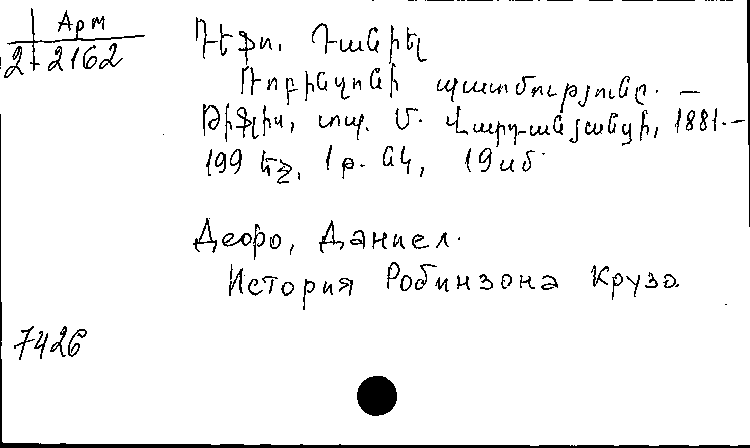 Арм
2-2162
Դէֆո, Դանիել
Ռոբինզոնի պատմությունը. —
Թիֆլիս, տպ. Մ. Վարդանյանցի, 1881.—
199 եջ, 1 թ. նկ, 19 սմ
Дефо, Даниел.
История Робинзона Крузо.
7426